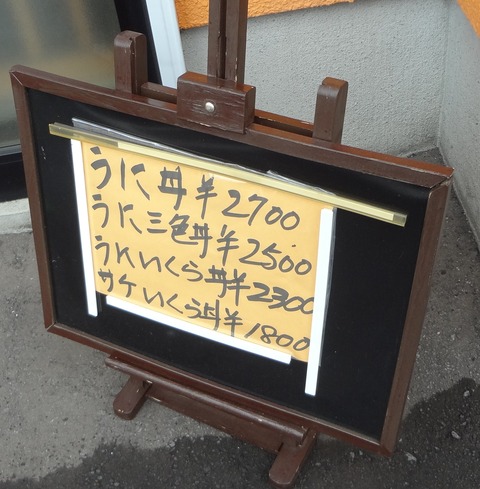 うに丼¥2700
うに三色丼¥2500
うにいくら丼¥2300
サケいくら丼¥1800